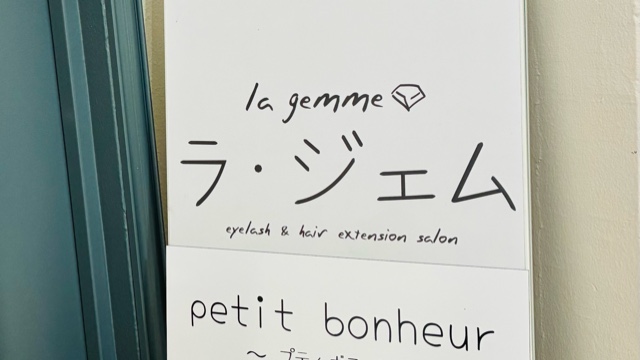 la gemme
ラ・ジェム
eyelash & hair extension salon
petit bonheur